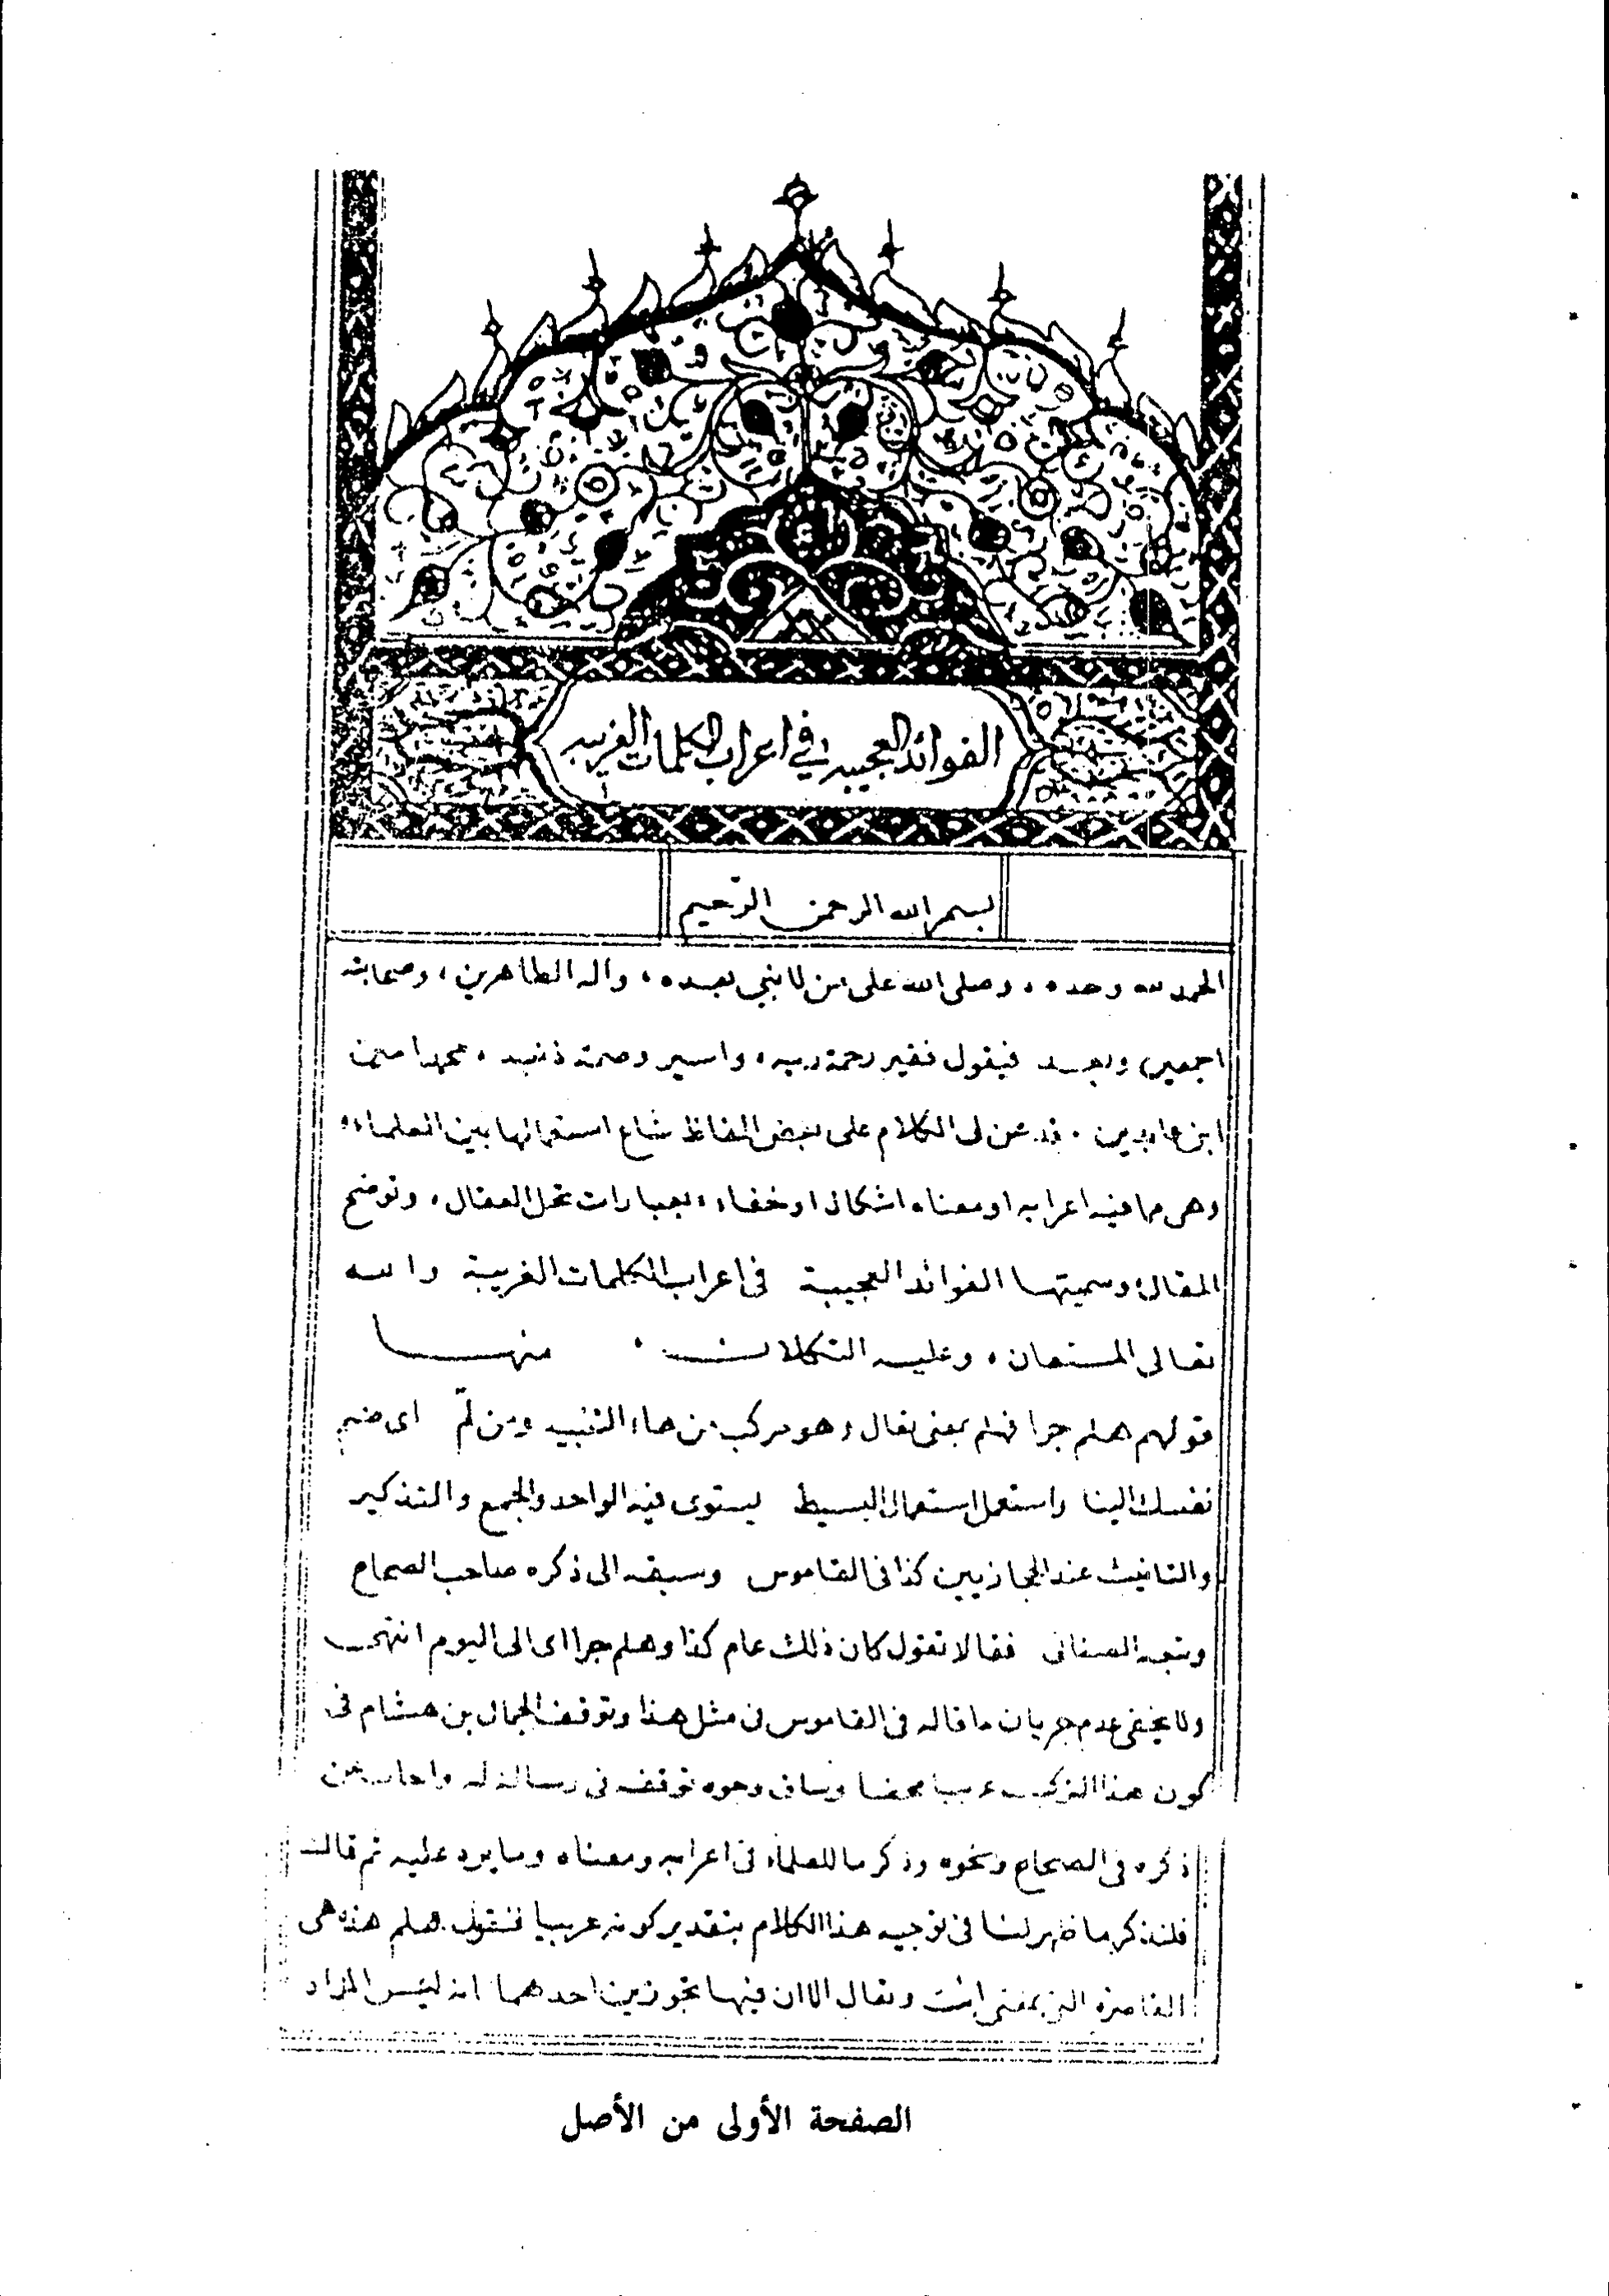 الفوائد العجيبه في اعراب الكلمات الغريبه
بسم الله الرحمن الرحيم
الحمد لله وحده ، وصلى الله على من لا نبي بعده ، واله الطاهرين ، وصحابته
اجمعين وبعد فيقول فقير رحمة ربه ، واسير وصمة ذنبه ، محمد امين
ابن عابدين . قد عن لى الكلام على بعض الفاظ شاع استعمالها بين العلماء ،
وهى مما فيه اعرابه او معناه اشكال او خفاء ، بعبارات تحل العقال ، وتوضح
المقال ، وسميتها الفوائد العجيبة فى اعراب الكلمات الغريبة والله
تعالى المستعان ، وعليه التكلان . منها
قولهم هلم جرا فهلم بمعنى تعال وهو مركب من هاء التنبيه ومن لمّ اى ضم
نفسك الينا واستعمل استعمال البسيط يستوى فيه الواحد والجمع والتذكير
والتانيث عند الحجازيين كذا فى القاموس وسبقه الى ذكره صاحب الصحاح
وتبعه الصغانى فقالا تقول كان ذلك عام كذا وهلم جرا اى الى اليوم انتهى
ولا يخفى عدم جريان ما قاله فى القاموس فى مثل هذا وتوقف الجمال بن هشام فى
كون هذا التركيب عربيا محضا وساق وجوه توقفه فى رسالة له واجاب عن
ذكره فى الصحاح ونحوه وذكر ما للعلماء فى اعرابه ومعناه وما يرد عليه ثم قال
فلنذكر ما ظهر لنا فى توجيه هذا الكلام بتقدير كونه عربيا فنقول هلم هذه هى
القاصرة التى بمعنى ائت وتعال الا ان فيها تجوزين احدهما انه ليس المراد
الصفحة الأولى من الأصل